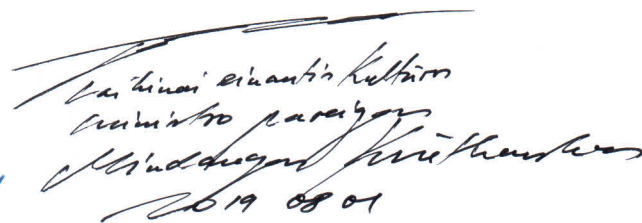 Laikinai einantis Kultūros
ministro pareigas
Mindaugas Kvietkauskas
2019 08 01